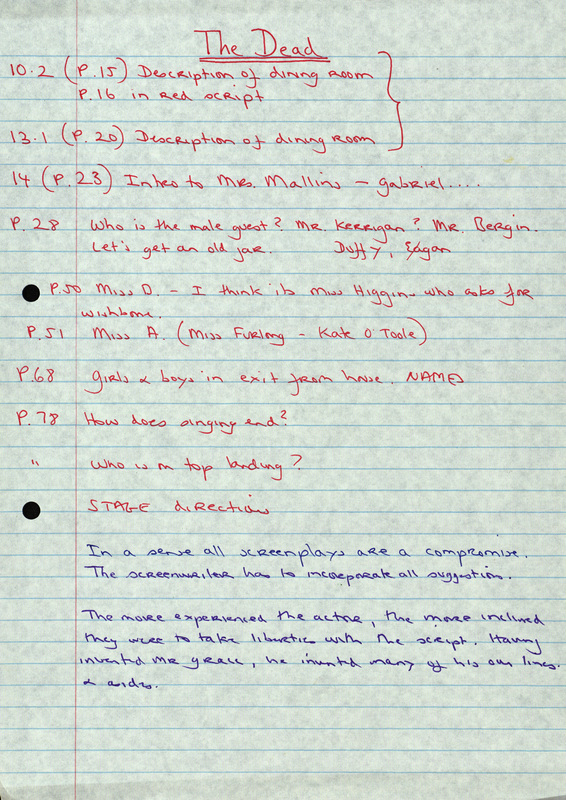 The Dead
10.2 (P.15) Description of dining room
P.16 in red script
13.1 (P.20) Description of dining room
14 (P.23) Intro to Mrs. Mallins – Gabriel....
P.28 Who is the male guest? Mr. Kerrigan? Mr. Bergin.
Let's get an old jar. Duffy, Egan
P.50 Miss D. – I think its Miss Higgins who asks for
wishbone.
P.51 Miss A. (Miss Furlong – Kate O'Toole)
P.68 Girls & boys in exit from house. NAMES
P.78 How does singing end?
" Who is on top landing?
STAGE directions
In a sense all screenplays are a compromise.
The screenwriter has to incorporate all suggestions.
The more experienced the actor, the more inclined
they were to take liberties with the script. Having
invented Mr Grace, he invented many of his own lines.
&